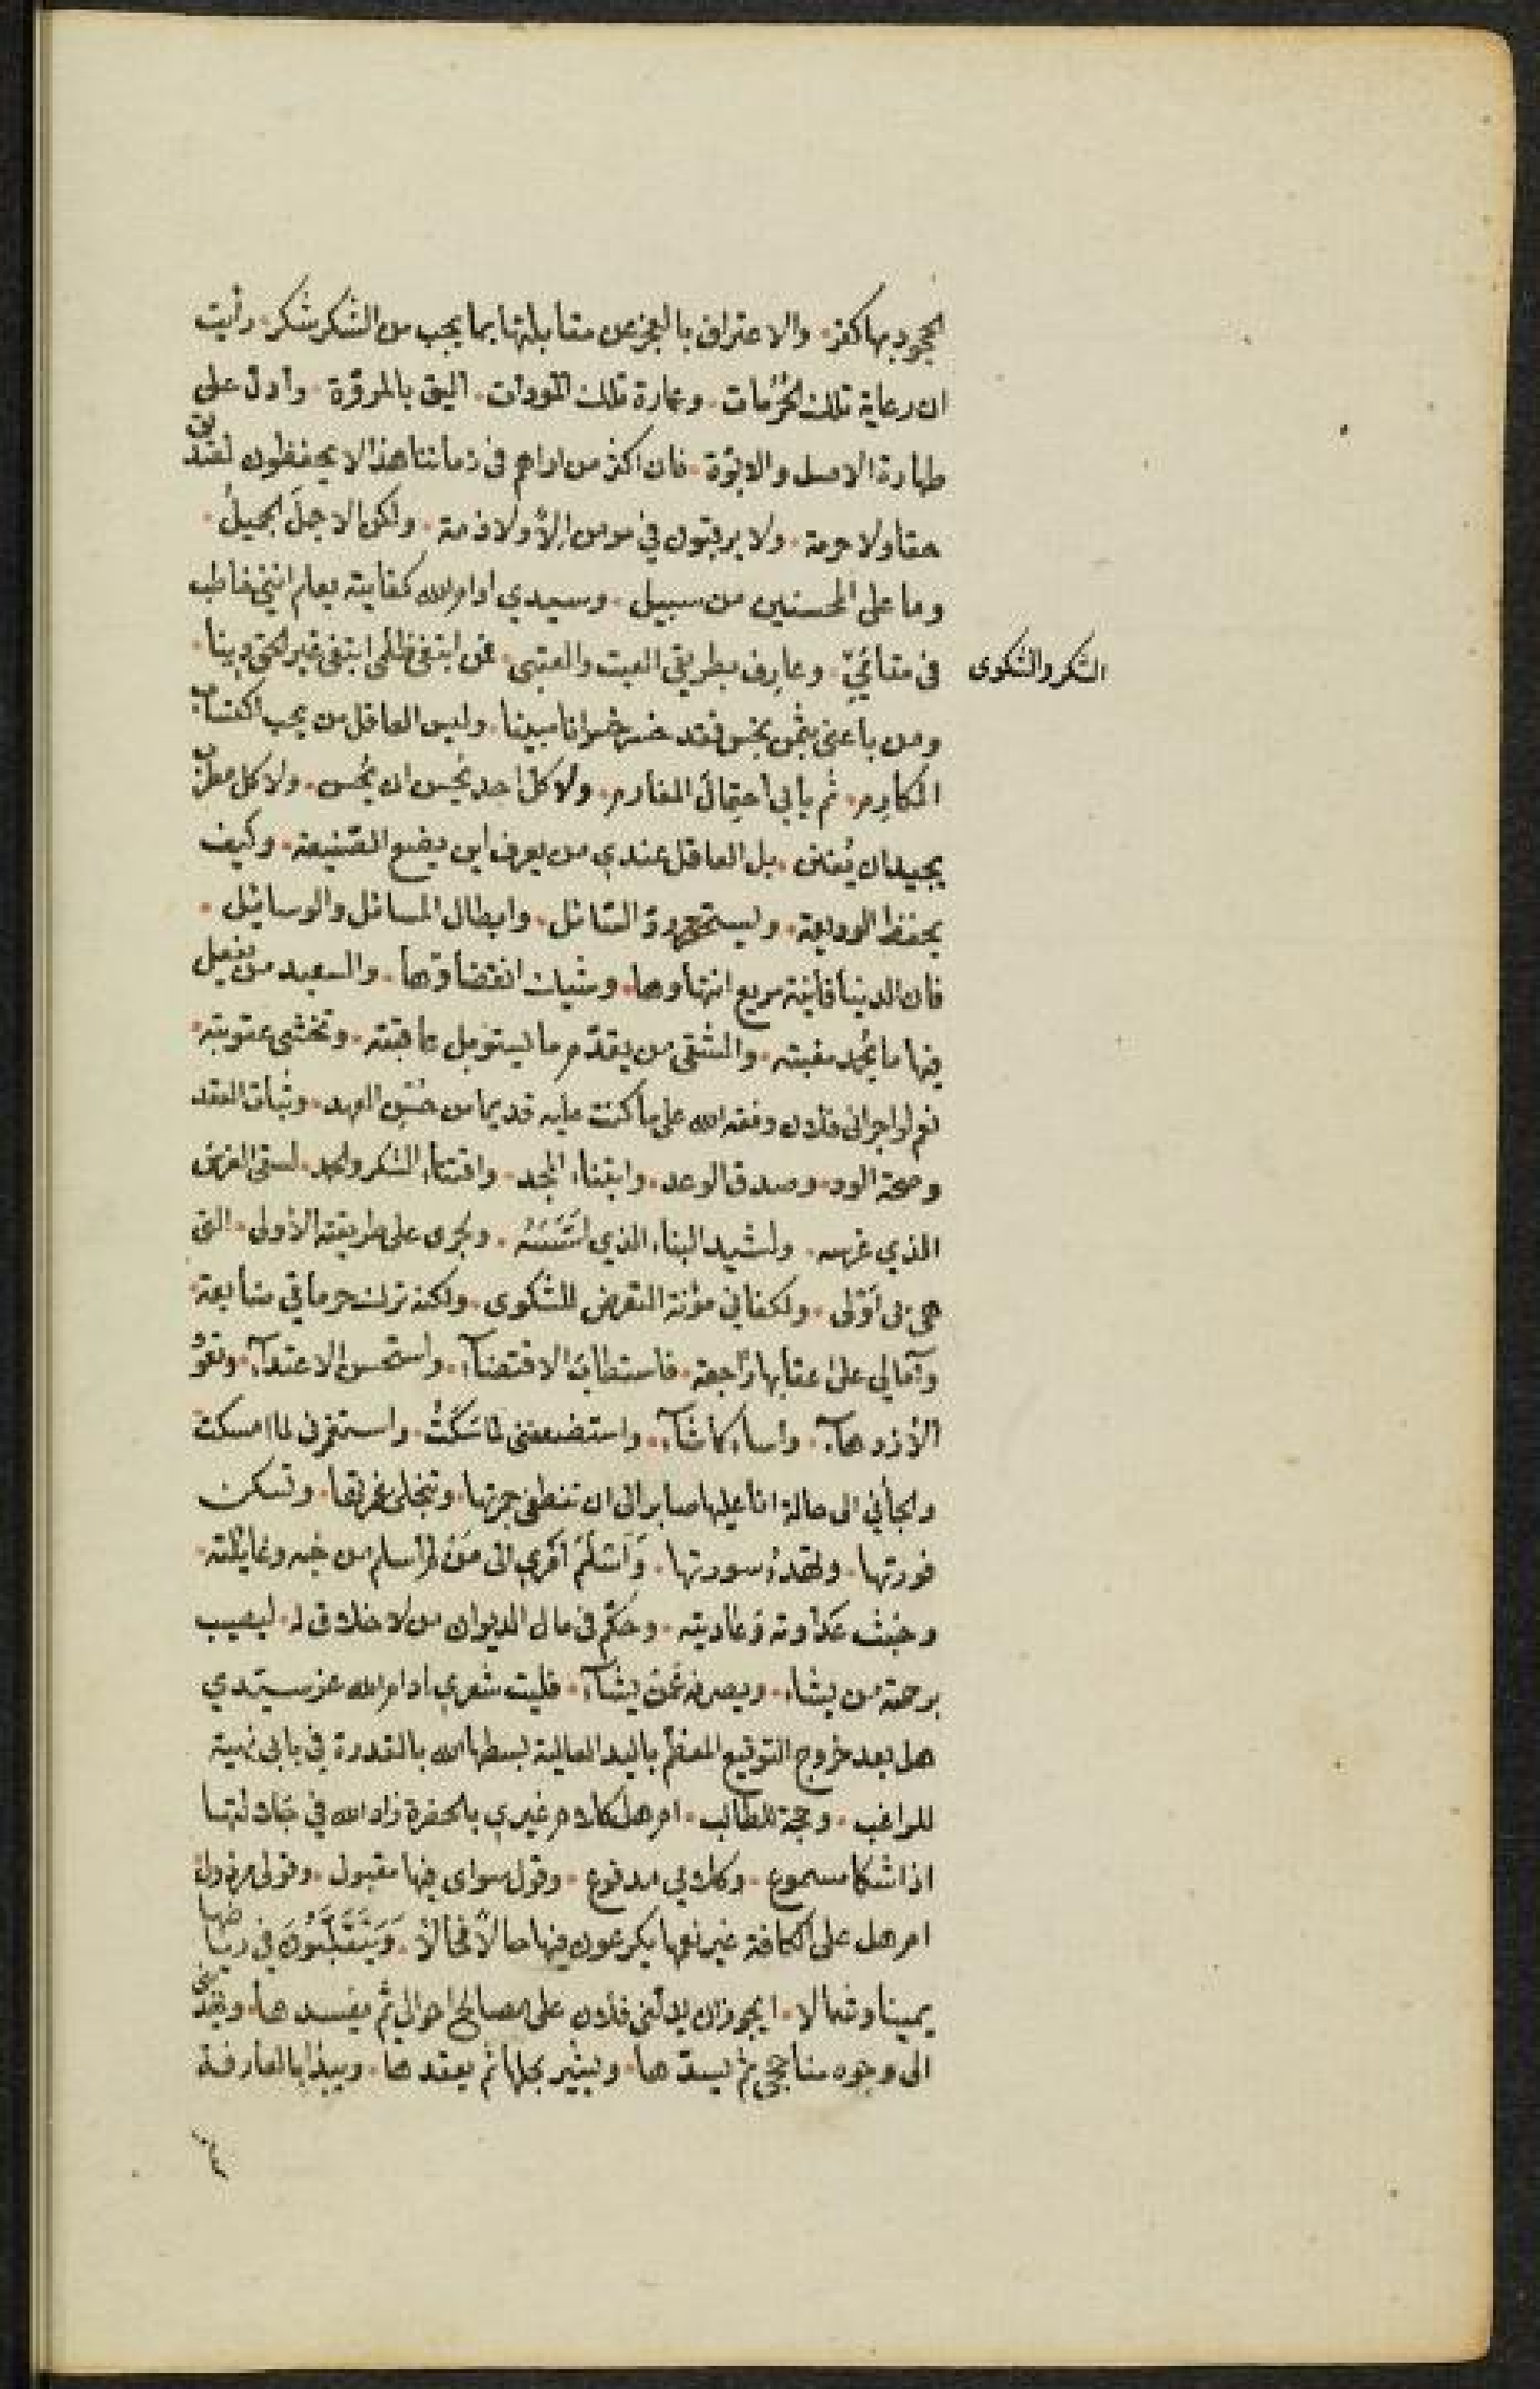 الجحود بها كفر. والاعتراف بالعجز عن مقابلتها بما يجب من الشكر شكر. رأيت
ان رعاية تلك الحُرُمات. وعمارة تلك المودات. اليق بالمروّة. وأدل على
طهارة الاصل والابوّة. فان اكثر من اراهم فى زماننا هذا لا يحفظون لصديق
حقا ولا حرمة. ولا يرقبون في مومن إلاًّ ولا ذمة. ولكن الاجملَ الجميلُ.
وما على المحسنين من سبيل. وسيدي ادام الله كفايته يعلم انني خاطب
فى متاعي. وعارف بطريقي العتب والعتبى. فمن ابتغى ظلمى ابتغى غير الحق دينا.
الشكر والشكوى
ومن باعنى بثمن بخس فقد خسر خسرانا مبينا. وليس العاقل من يحب اكتساب
المكارم. ثم يابى احتمال المغارم. ولا كل احد يُحسن ان يُحسن. ولا كل
يجيد ان. بل العاقل عندي من يعرف اين يضع الصنيعة. وكيف
يحفظ الوديعة. وابطال المسائل والوسائل.
فان الدنيا فانية سريع انتهاوها. وشيك انقضاوها. والسعيد من يفعل
فيها ما يُحمد مغبته. والشقى من يقدّم ما يستوبل عاقبته. وتخشى عقوبته.
نعم لو اجرانى فلان وفقه الله على ما كنت عليه قديما من حُسن العهد. وثبات العقد
وصحة الود. وصدق الوعد. وابتناء المجد. واقتناء الشكر والحمد. لسقى الغرس
الذي غرسه. ولشيد البناء الذي اسّسَه. ولجرى على طريقته الأولى. التى
هى بى أوْلى. ولكفاني مؤنة التعرض للشكوى. ولكنه ترك حرماتي متتابعة.
وآمالى على اعقابها راجعة. فاستطاب الاقتضآء. واستحسن الاعتدآء. وتعوّد
الأزدهآء. واساء كما شآء. واستضعفنى لما سَكَتُّ. واستغمرنى لما امسكت
والجأني الى حالة انا عليها صابر الى ان تنطفى جمرتها. وتنجلى غمرتها. وتسكن
فورتها. وتهدأ سورتها. وَاَسْلَمَ امْرِي الى مَنْ لم اسلم من خبه وغايلته.
وخبث عداوته وعاديته. وحكّم فى مال الديوان من لا خلاق له. ليصيب
برحمته من يشاء. ويصرفه عمّن يشآء. فليت شعري ادام الله عز سيّدي
هل بعد خروج التوقيع المعظّم باليد العالية بسطها الله بالقدرة في بابى نهية
للراغب. وحجة للطالب. ام هل كلام غيري بالحضرة زاد الله في
اذا شكا مسموع. وكلامي مدفوع. وقول سواى فيها مقبول. وقولى مرذول.
ام هل على الكافة غير نعمها يكرعون فيها حالاً فحالاً. وَيَتَقَلَّبُونَ في رياضها
يمينا وشمالا. ايجوز ان يدلّنى فلان على مصالح احوالي ثم يفسدها. ويهدينى
الى وجوه مناجحى ثم يسدّها. ويشير بحلها ثم يعقدها. ويبدأ بالعارفة